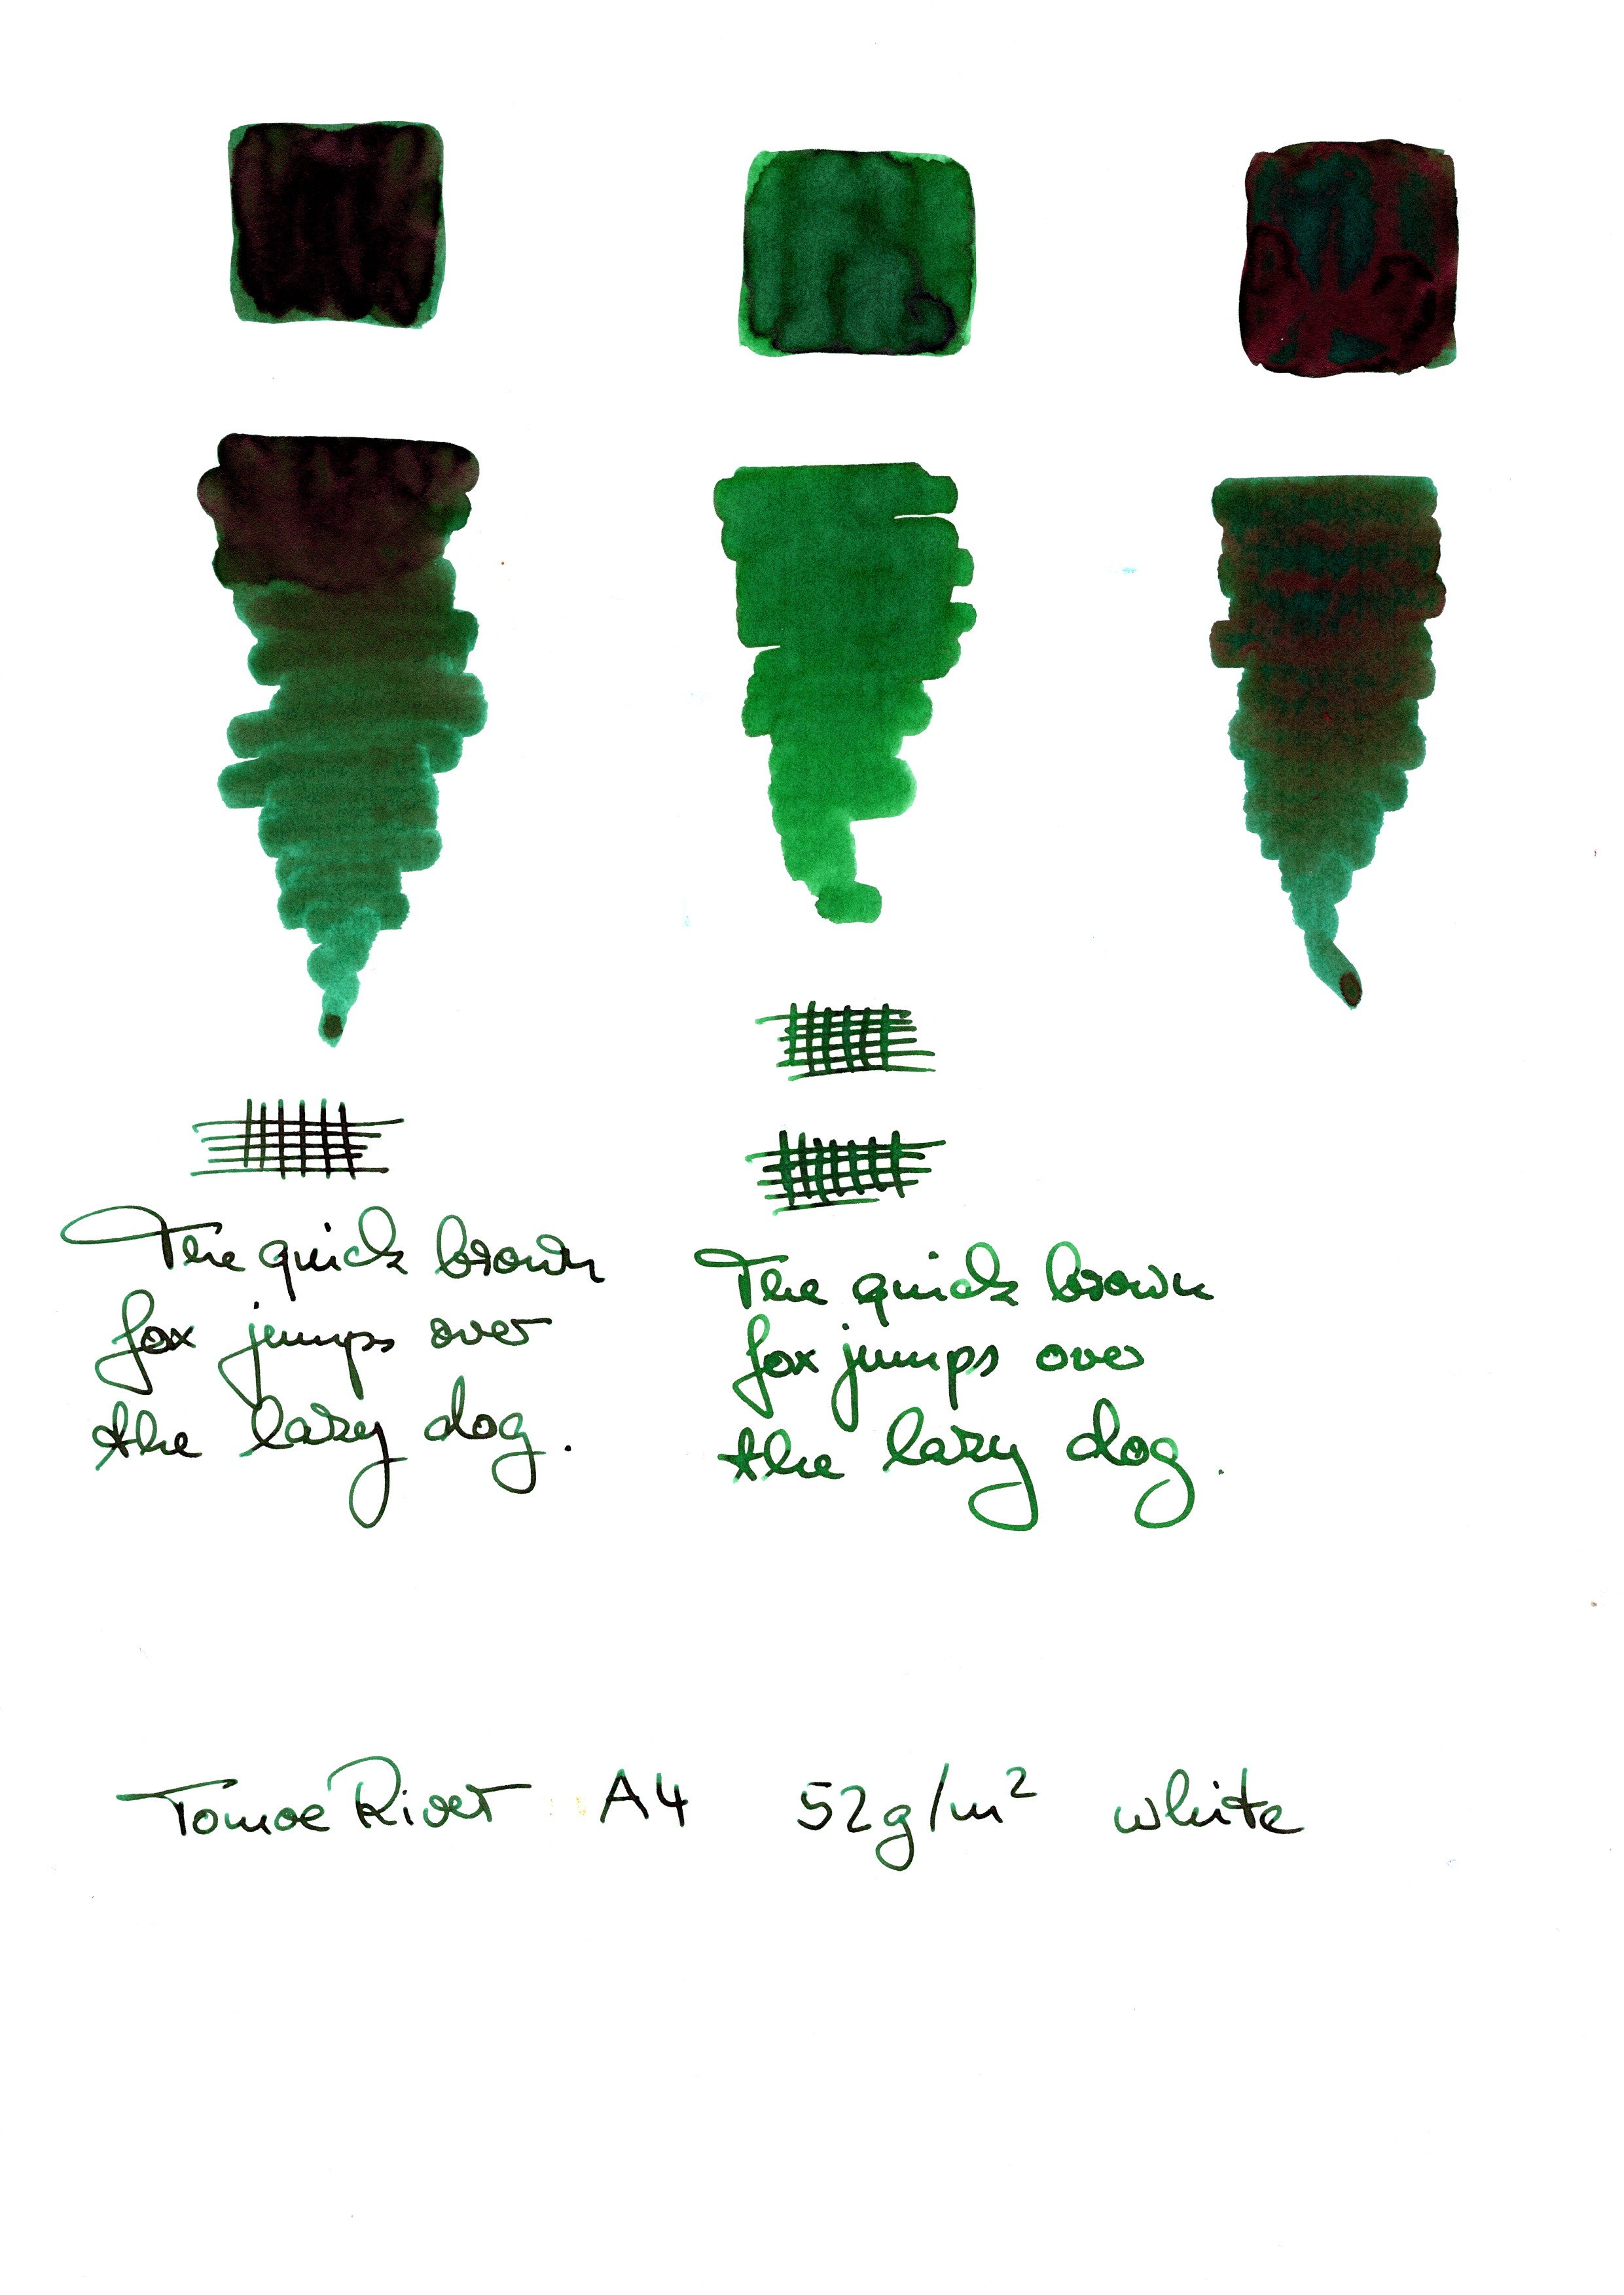 The quick brown
fox jumps over
the lazy dog.
The quick brown
fox jumps over
the lazy dog.
Tomoe River A4 52g/m² white